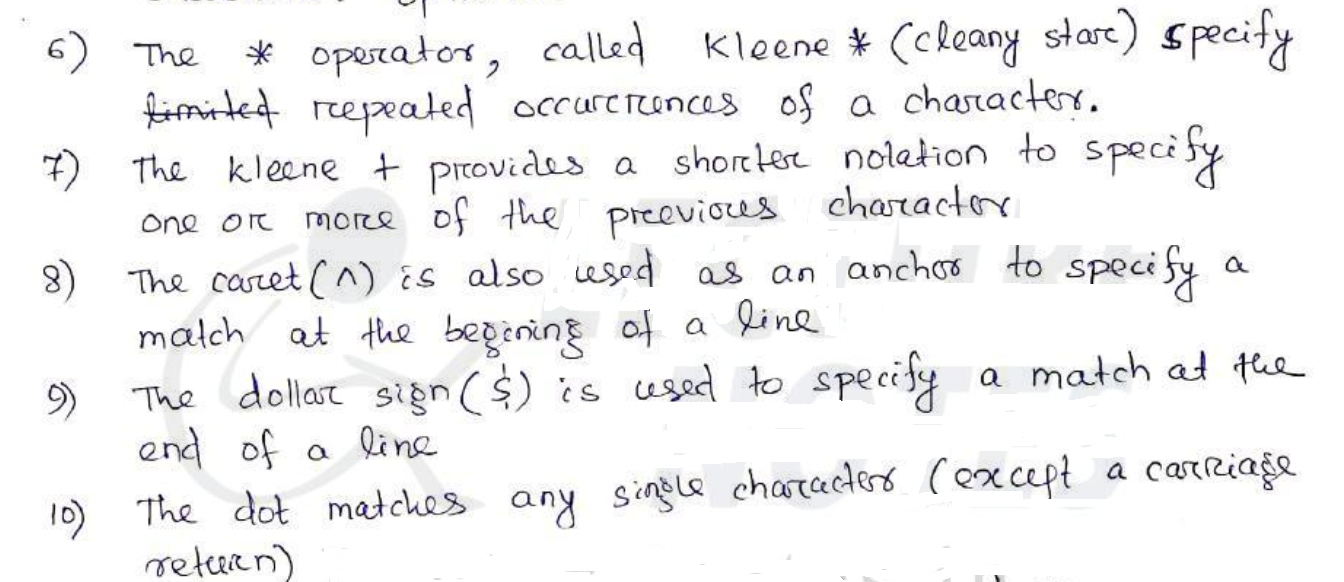 6) The * operator, called Kleene * (cleany star) specify
limited repeated occurrences of a character.
7) The kleene + provides a shorter notation to specify
one or more of the preevious charactor
8) The caret (^) is also used as an anchor to specify a
match at the begining of a line
9) The dollar sign ($) is used to specify a match at the
end of a line
10) The dot matches any single character (except a carriage
return)